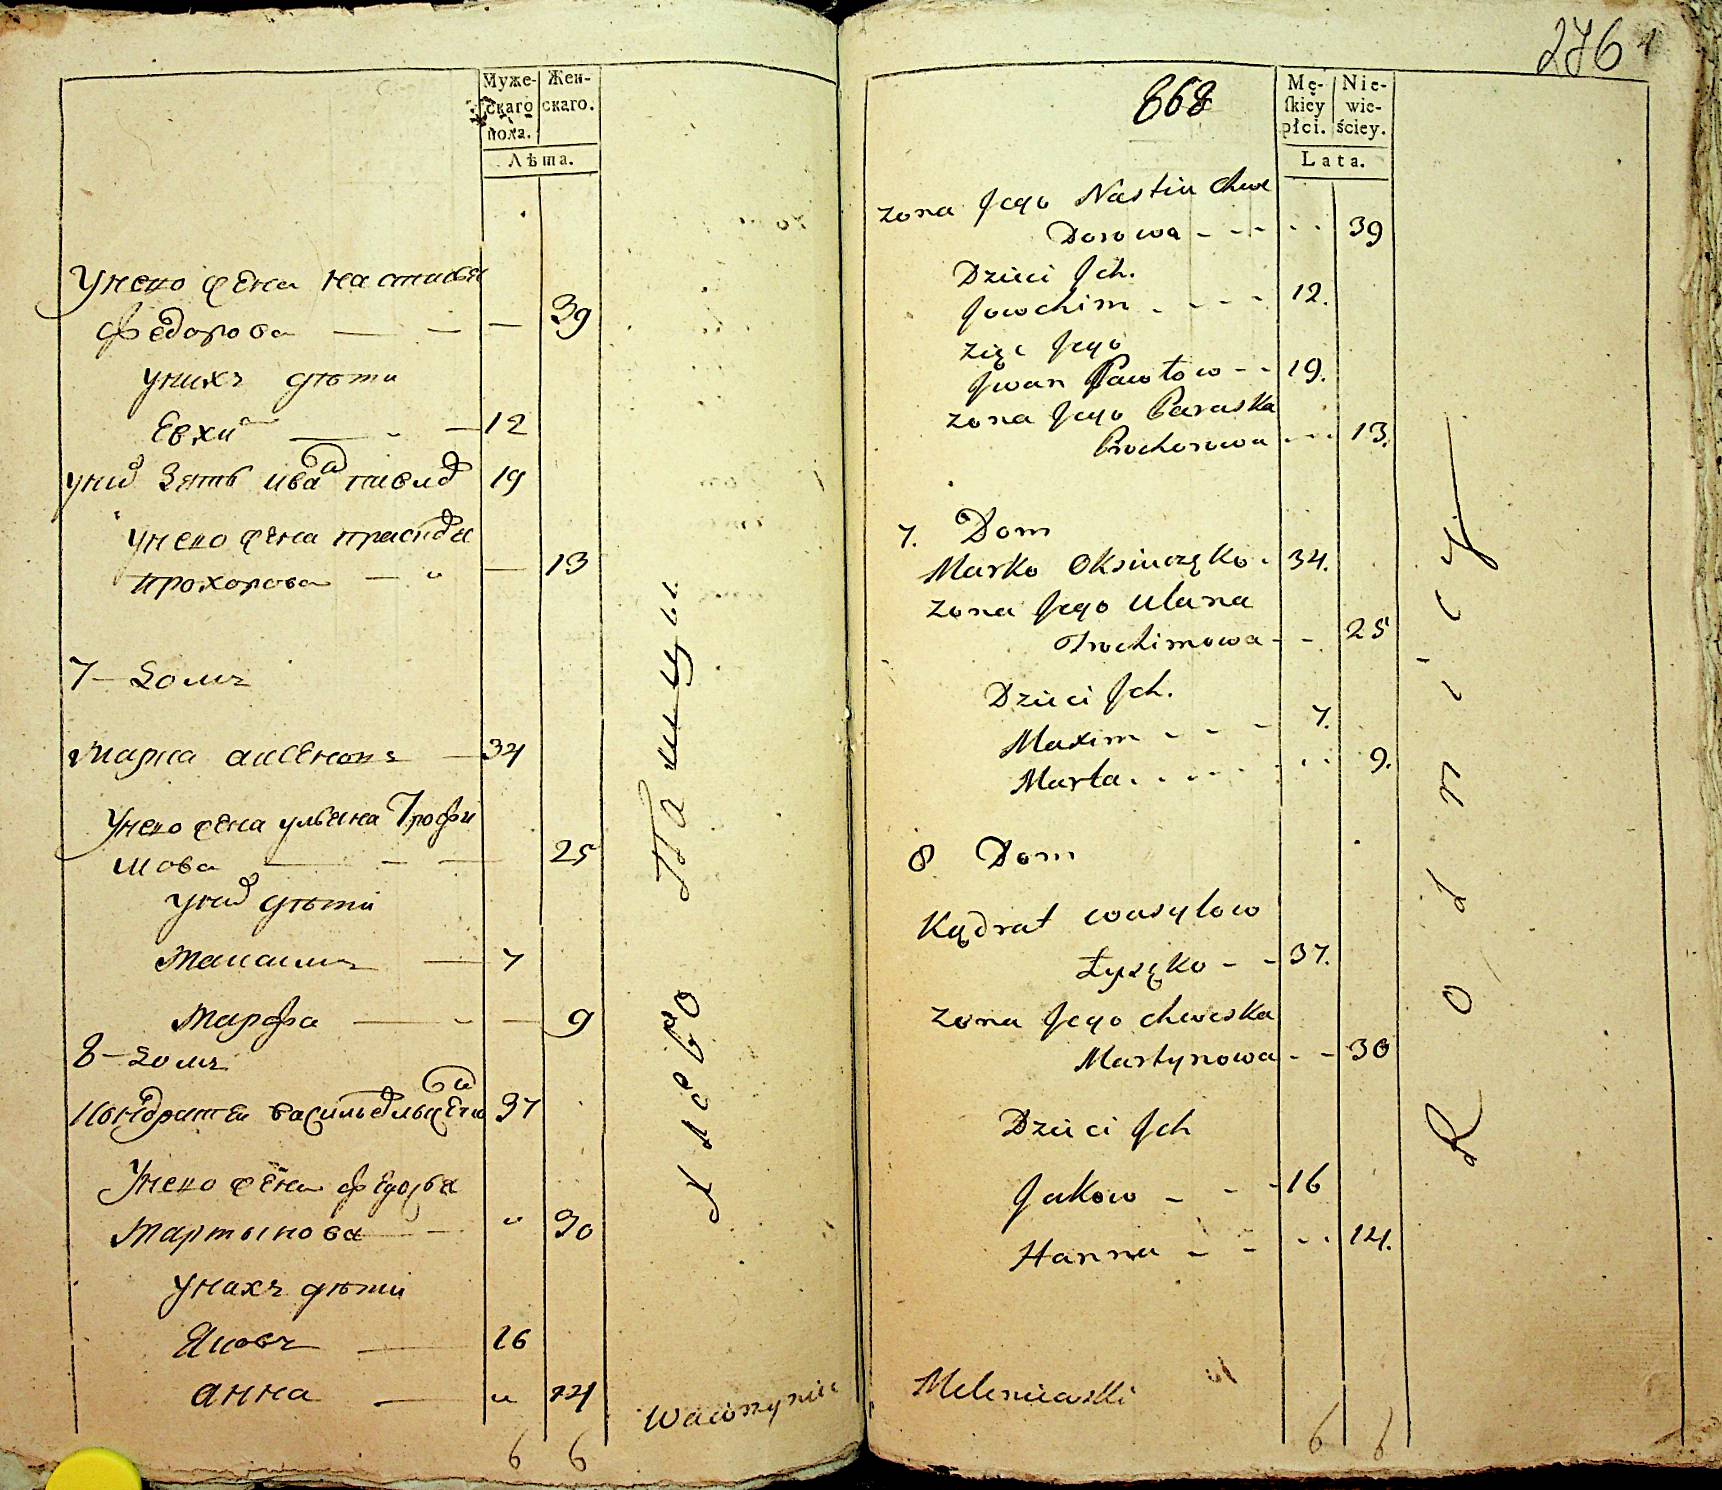 Муже-
скаго
пола.
Жен-
скаго.
Лѣта.
Унего жена настасья
Федорова — — — 39
унихъ дѣти
Евхи — - — 12
уних Зять иван павлов 19
унего жена прасковья
прохорова — " — 13
7 — Домъ
Марка аксенокъ — 34
Унего жена ульяна Трофи
мова — - — 25
уних дѣти
Максимъ — 7
Марфа — - — 9
8 — Домъ
Кондратей василь 37
Унего жена федосья
Мартынова — - " 30
Унихъ дѣти
Яковъ — 16
анна — " 14
6 6
Хлебо Пашцы
Wawrzyniec
276
868
Mę-
ſkiey
płci.
Nie-
wie-
ściey.
Lata.
zona Jego Nastiu Chwe
Dorowa - - - - - 39
Dzieci Jch.
Jowchim - - - - 12.
zięc Jego
Jwan Pawłow - - 19.
zona Jego Paraska
Prochorowa - - - 13.
7. Dom
Marko Oksiuczęko - 34.
zona Jego Ulana
Trochimowa - - 25
Dzieci Jch.
Maxim - - - 7.
Marta - - - - - - 9.
8 Dom
Kądrat wasylow
Łysęko - - 37.
zona Jego Chweska
Martynowa - - 30
Dzieci Jch
Jakow - - - 16
Hanna - - - - 14.
Rolnicy
Meleniewski
6 6